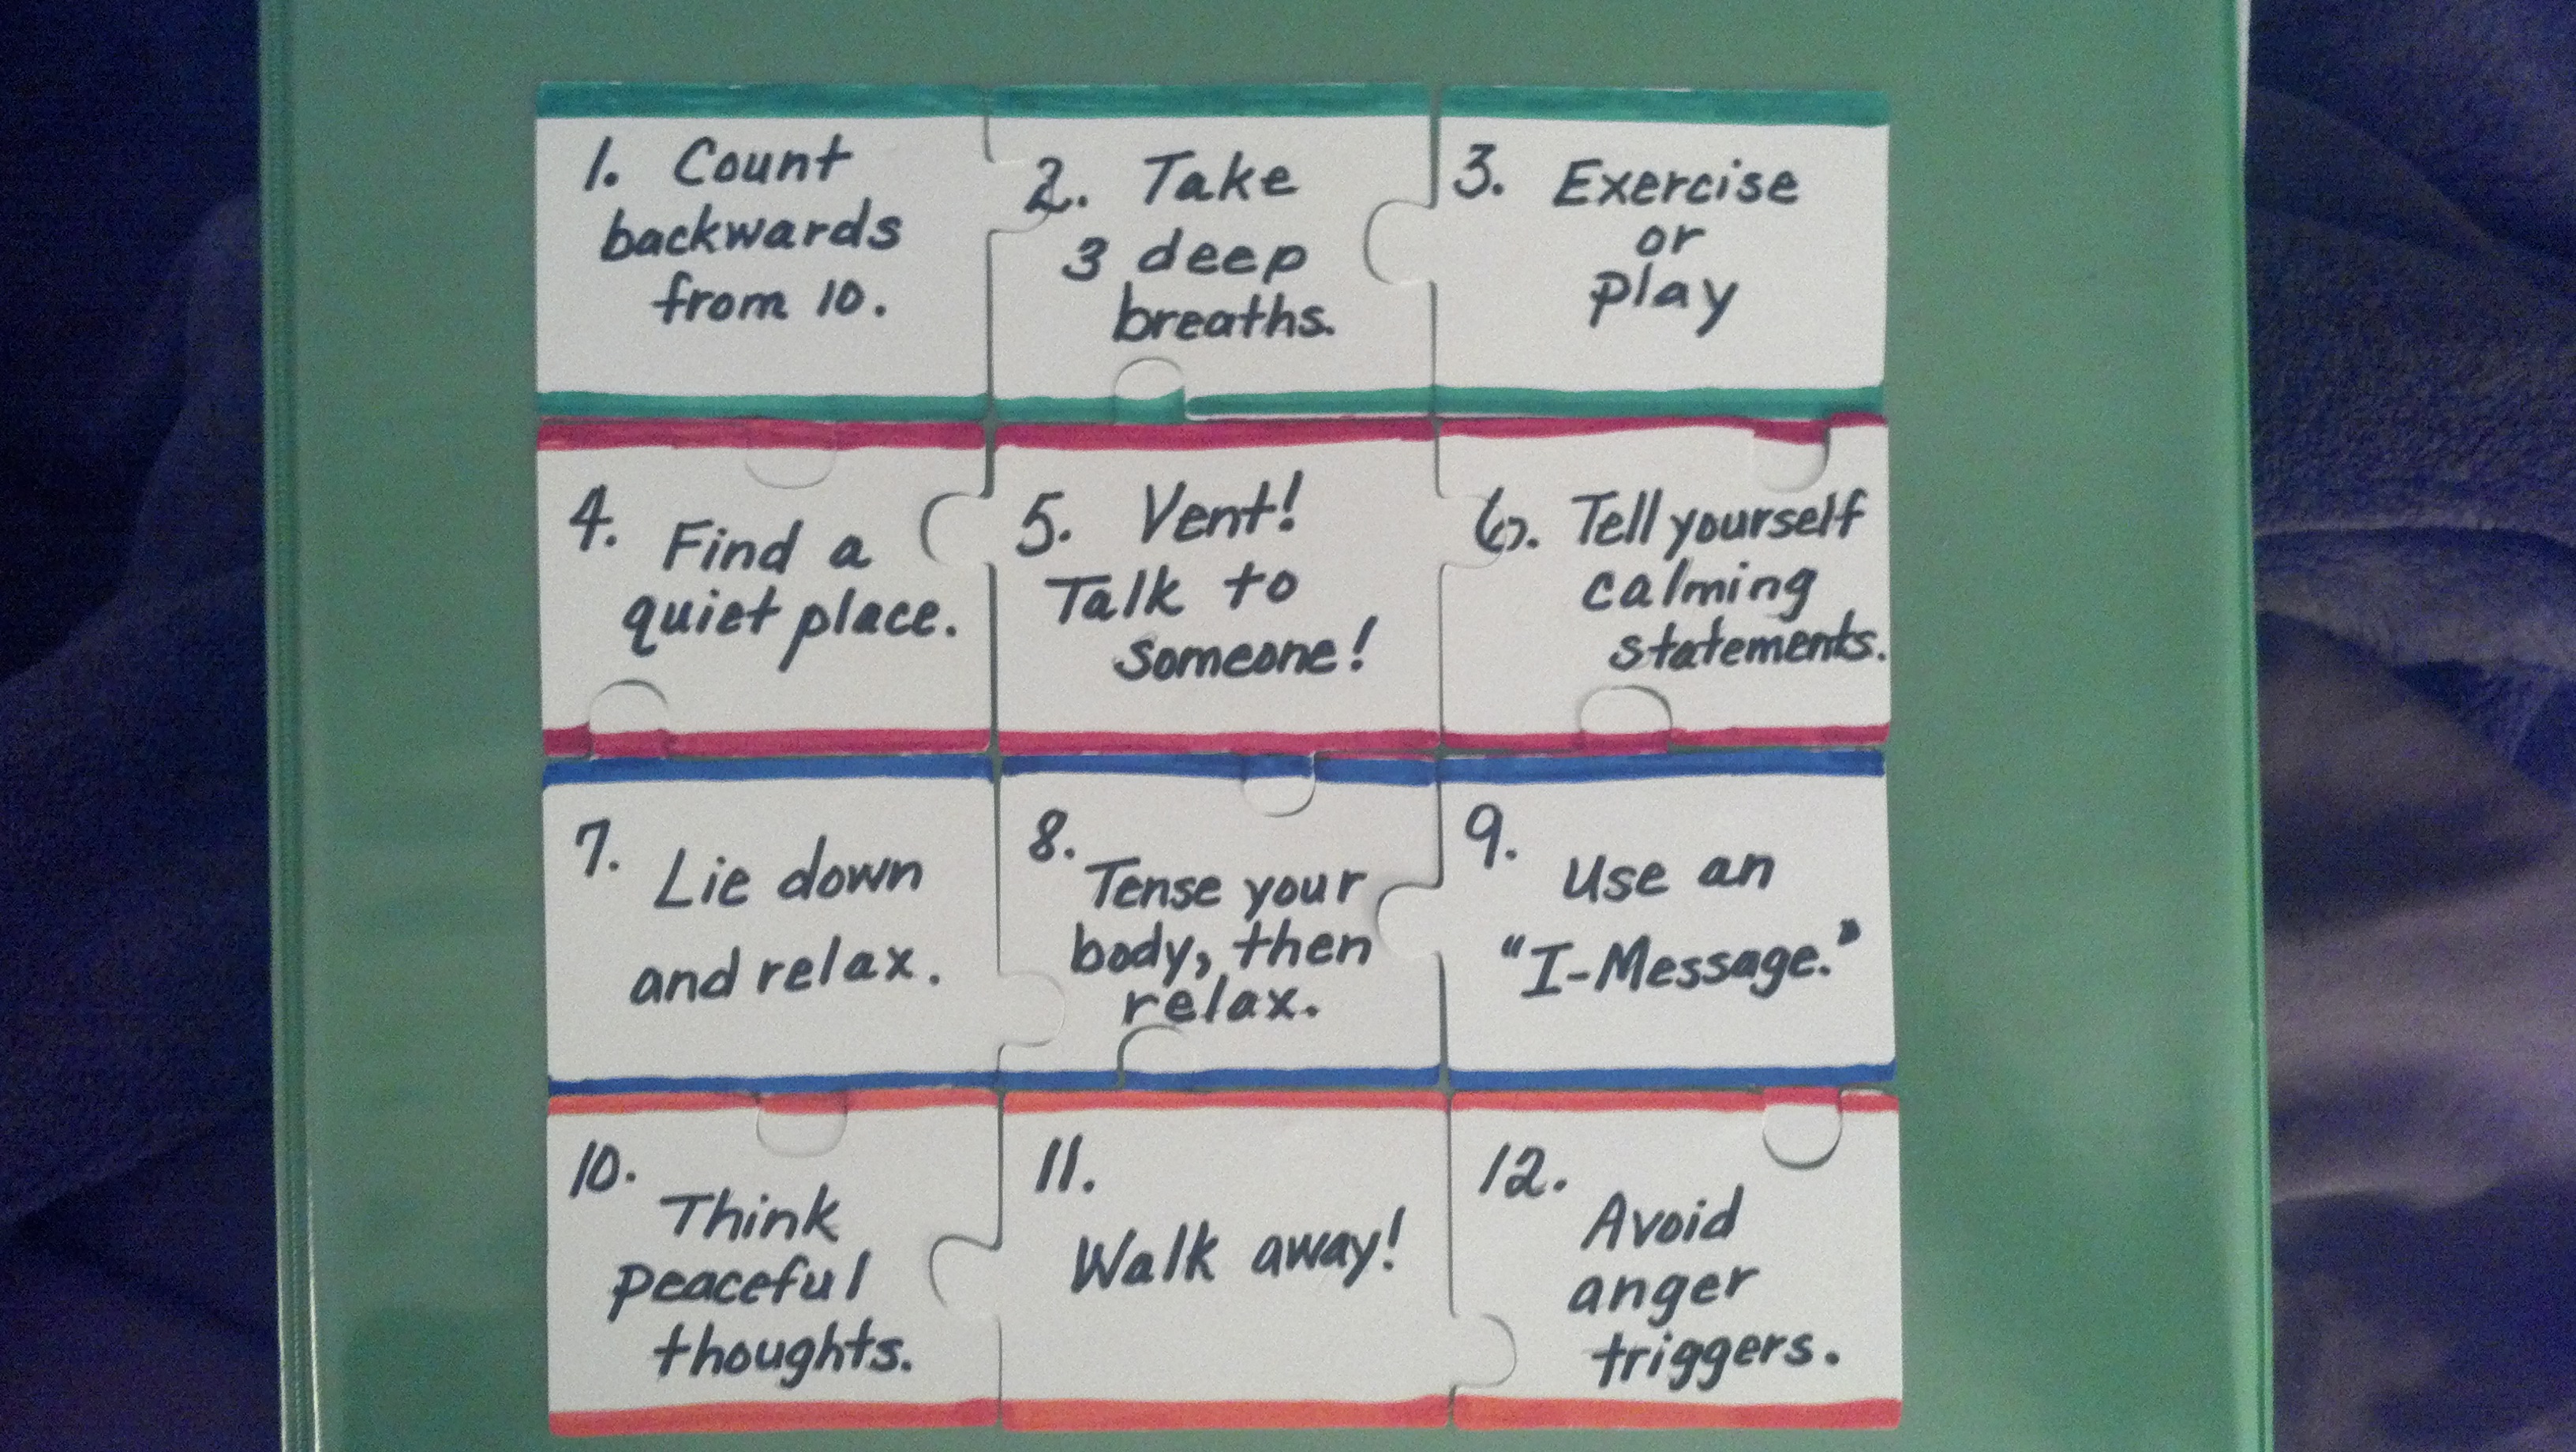 1. Count
backwards
from 10.
2. Take
3 deep
breaths.
3. Exercise
or
play
4. Find a
quiet place.
5. Vent!
Talk to
someone!
6. Tell yourself
calming
statements.
7. Lie down
and relax.
8. Tense your
body, then
relax.
9. Use an
"I-Message."
10. Think
peaceful
thoughts.
11.
Walk away!
12. Avoid
anger
triggers.